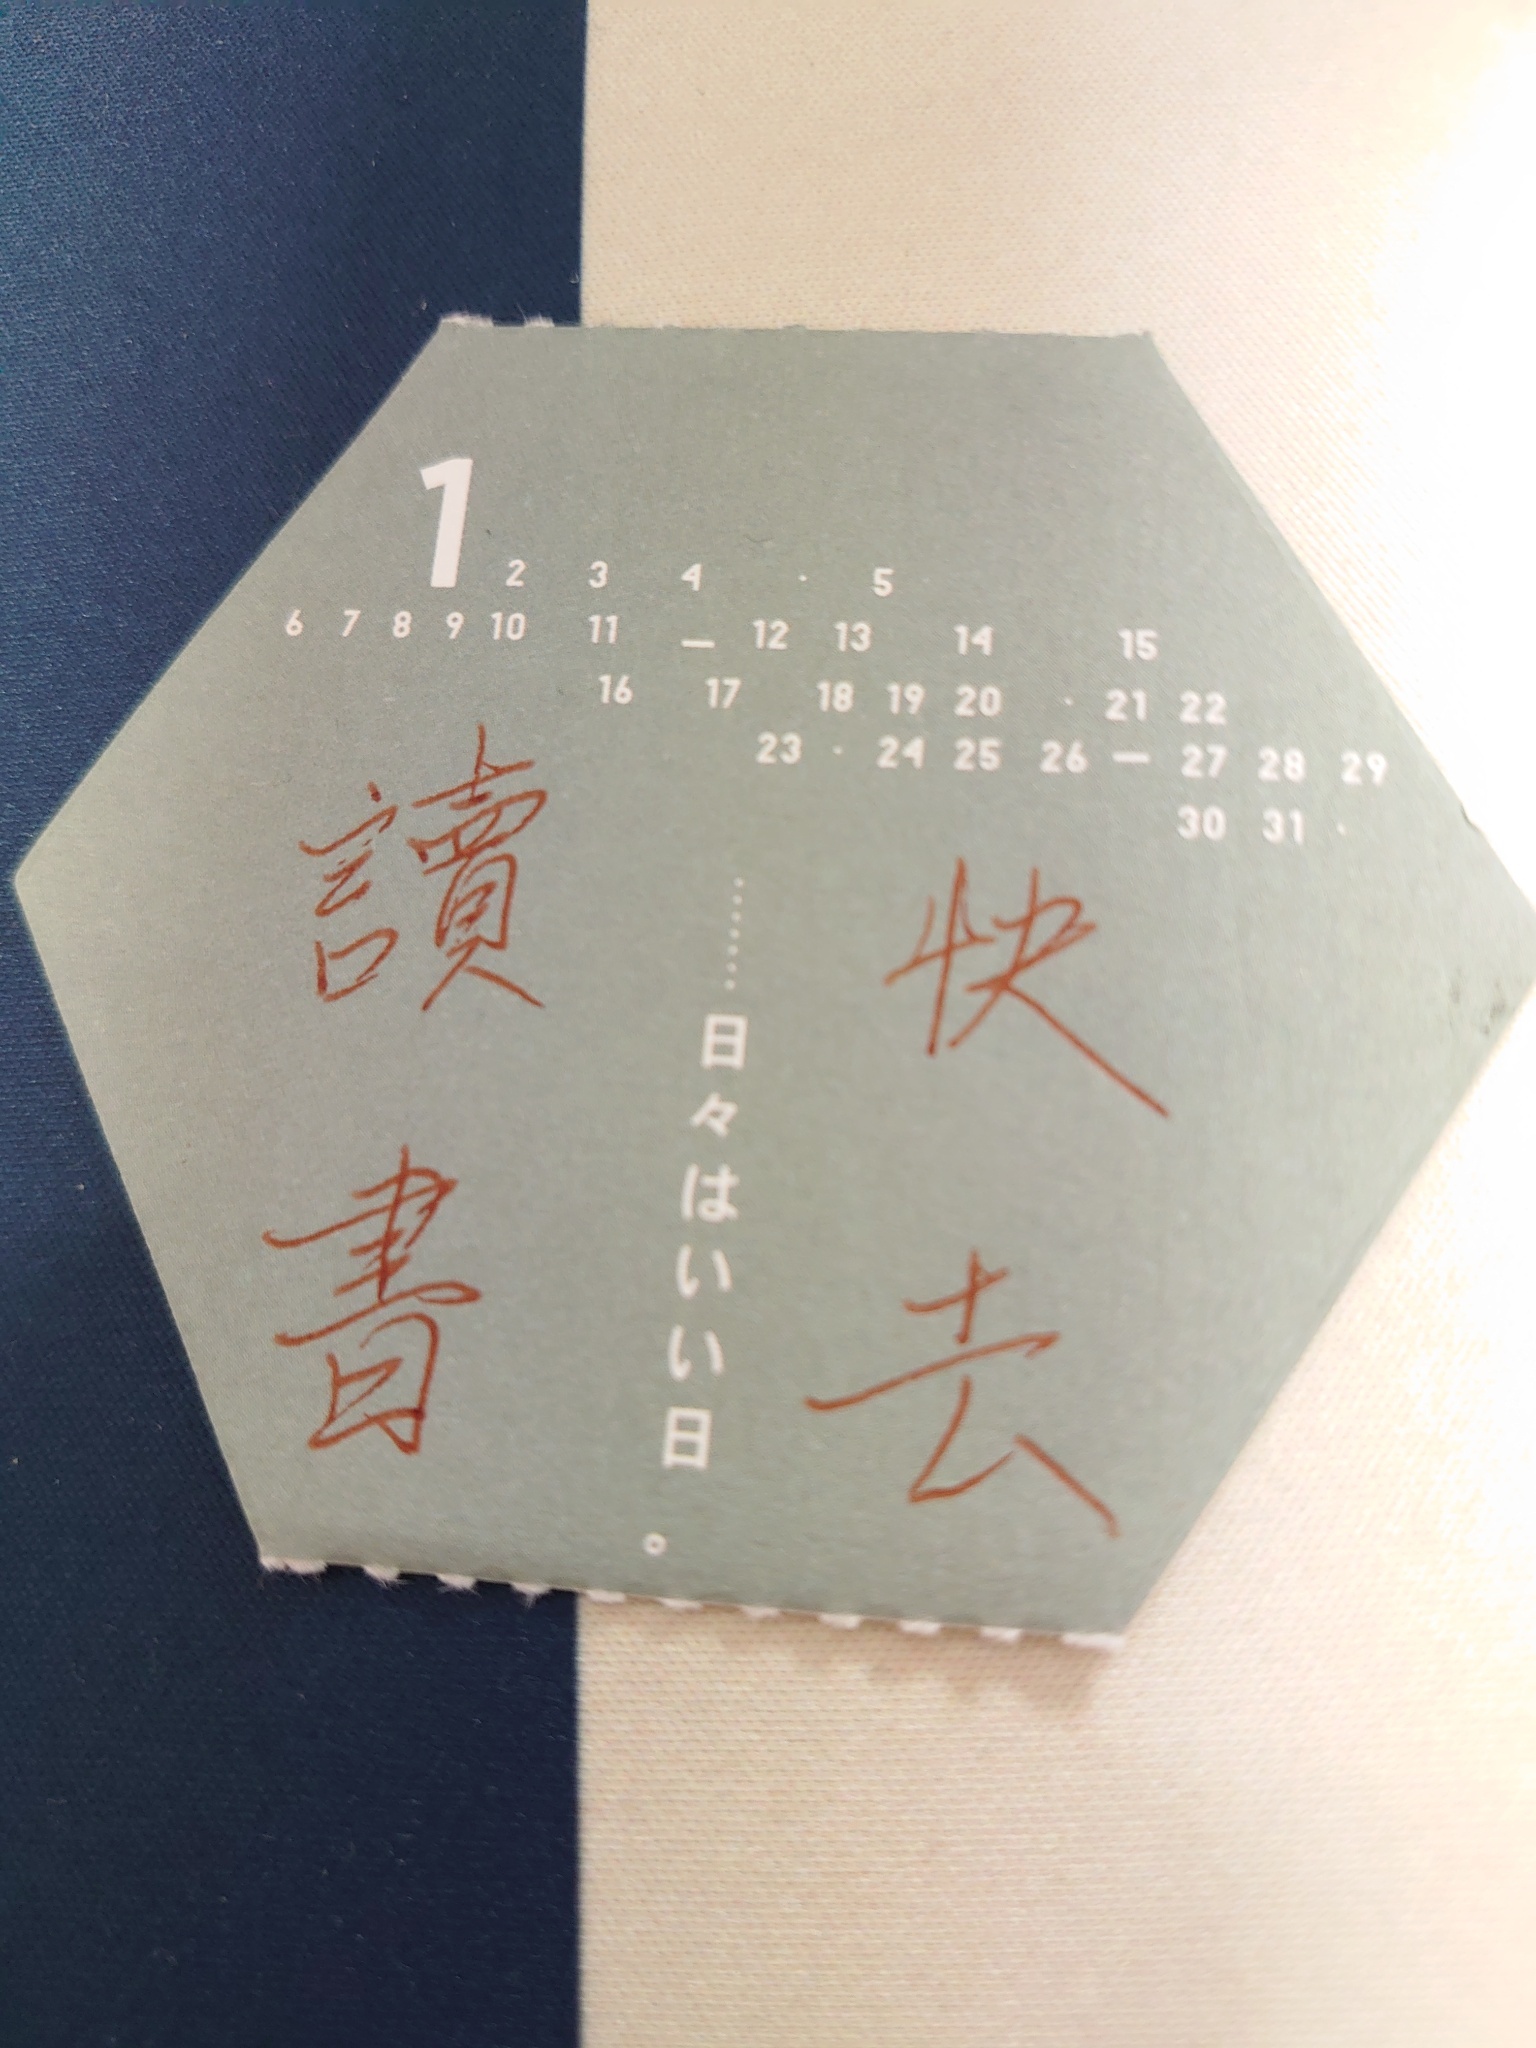 1 2 3 4 · 5
6 7 8 9 10 11 — 12 13 14 15
16 17 18 19 20 · 21 22
23 · 24 25 26 — 27 28 29
30 31 ·
快去
……日々はいい日。
讀書